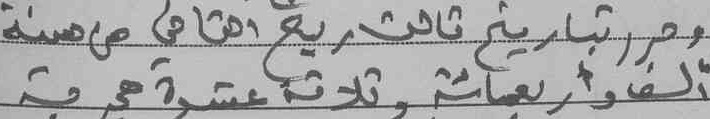 وحرر بتاريخ ثالث ربيع الثاني من سنة
ألف وأربعمائة وثلاثة عشرة هجرية